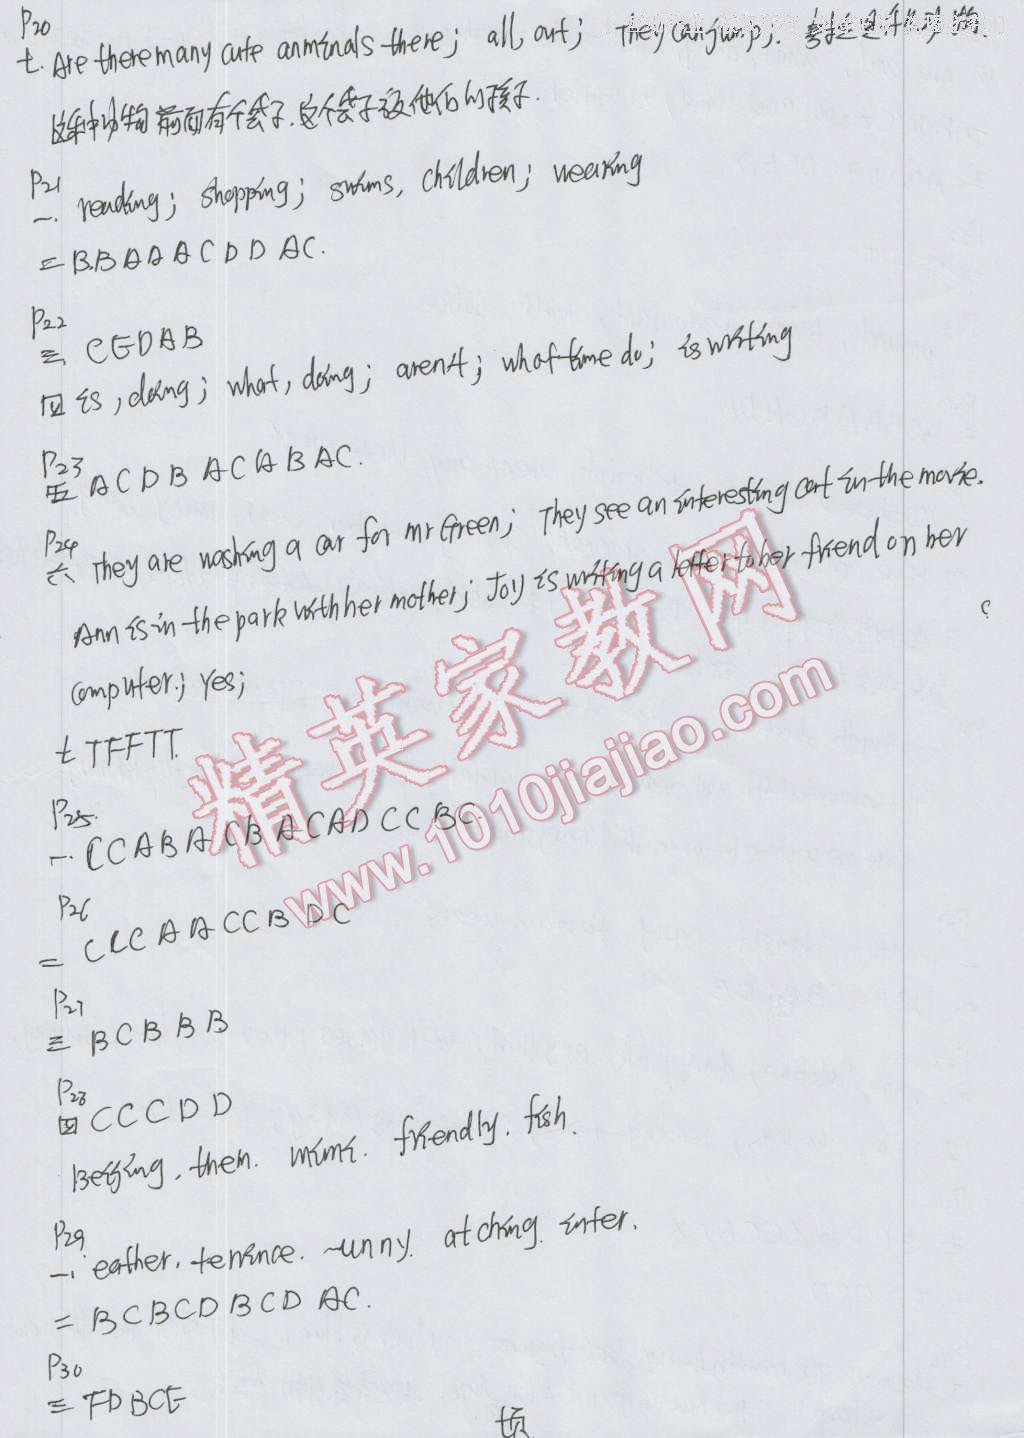 P20
七. Are there many cute anminals there; all, out; They can jump;
这种动物前面有个袋子.这个袋子
P21
一. reading; shopping; swims, children; wearing
二 B.B A A A C D D A C.
P22
三、C E D A B
四 is, doing; what, doing; aren't; what time do; is writing
P23
五 A C D B A C A B A C.
P24
六、They are washing a car for mr Green; They see an interesting cat in the movie.
Ann is in the park with her mother; Joy is writing a letter to her friend on her
computer.; Yes;
七 T F F T T.
P25.
一. C C A B A C B A C A D C C B C.
P26
二 C C C A A C C B D C
P27
三 B C B B B
P28
四 C C C D D
Beijing, them. mimi. friendly. fish.
P29
一. eather. terrince. unny. atching. inter.
二 B C B C D B C D A C.
P30
三 F D B C E
精英家教网
www.1010jiajiao.com